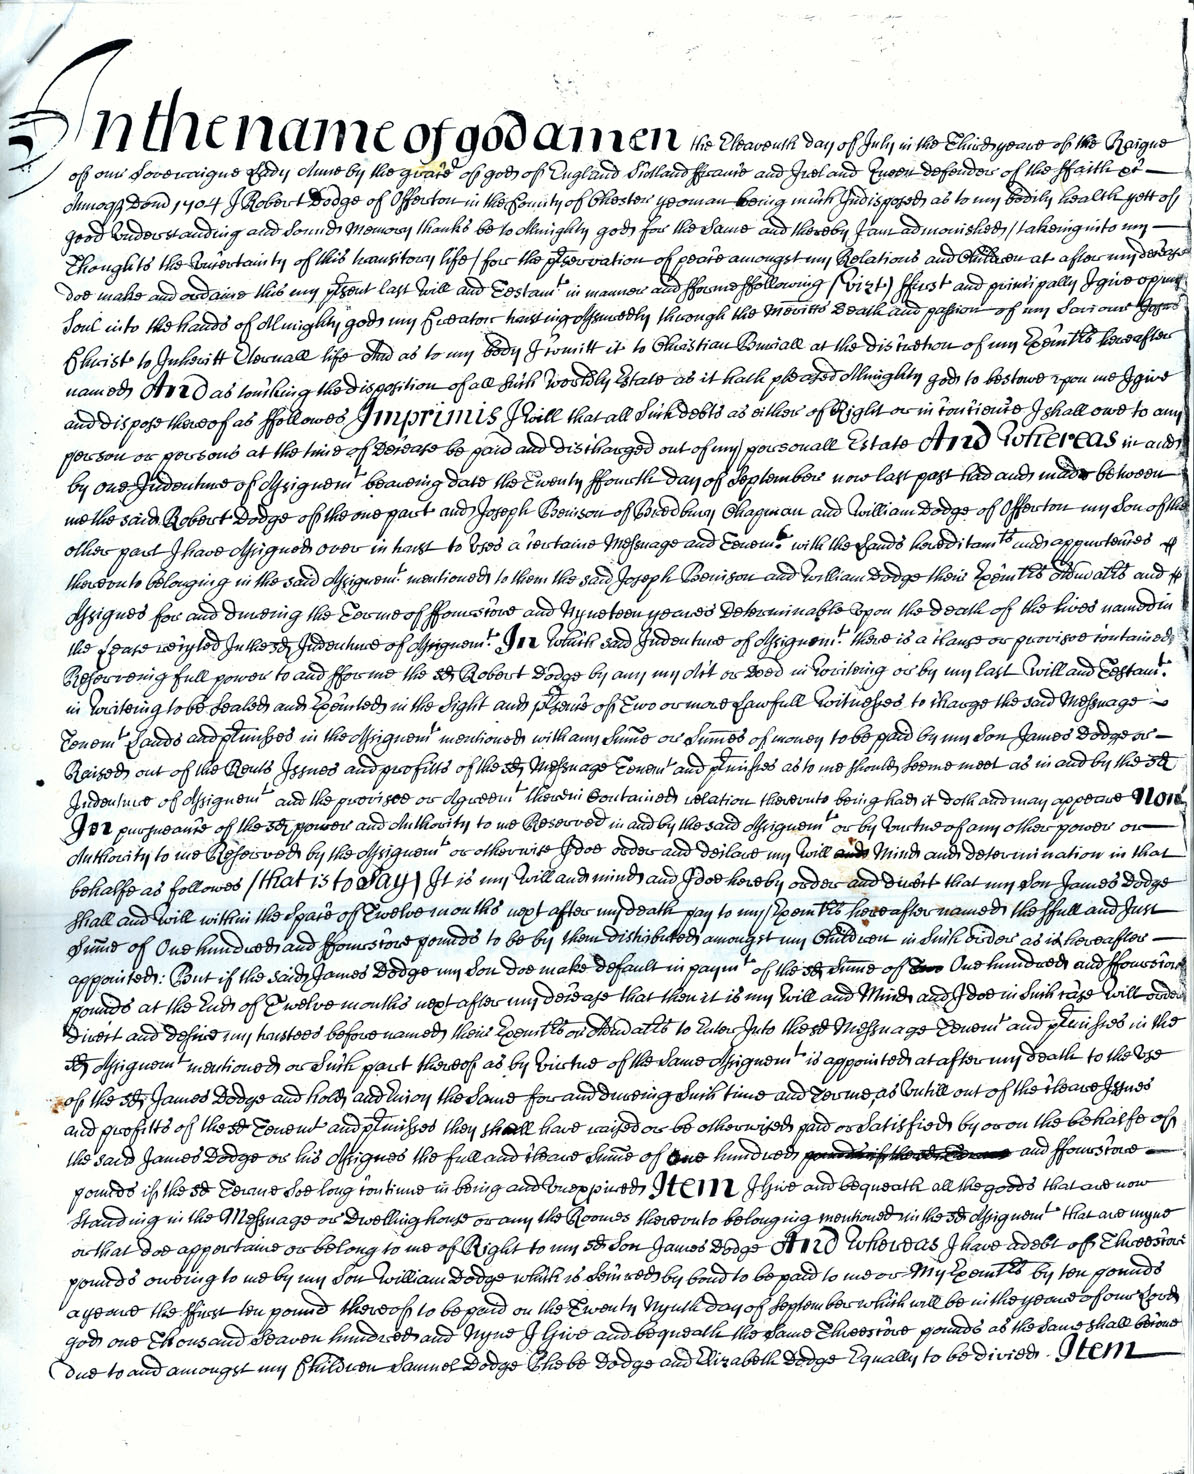 In the name of god amen the Eleaventh day of July in the Third yeare of the Raigne
of our Soveraigne Lady Anne by the grace of god of England Scotland ffrance and Ireland Queen defender of the ffaith &c
Annoq Dom 1704 I Robert Dodge of Offerton in the County of Chester yeoman being much Indisposed as to my bodily health yett of
good Understanding and Sound Memory thanks be to Almighty god for the Same and thereby I am admonished / takeing into my
Thoughts the Uncertainty of this transitory life / for the pservation of peace amongst my Relations and Children at after my decease
doe make and ordaine this my psent last Will and Testamt in manner and fforme ffollowing (vizt) ffirst and principally I give up my
Soul into the hands of Almighty god my Creator trusting Assuredly through the Meritts death and passion of my Saviour Jesus
Christ to Inheritt Eternall life And as to my body I comitt it to Christian Buriall at the discretion of my Execrs hereafter
named And as touching the disposition of all Such Worldly Estate as it hath pleased Almighty god to bestowe upon me I give
and dispose thereof as ffollowes Imprimis I will that all Such debts as either of Right or in concience I shall owe to any
person or persons at the time of decease be paid and discharged out of my personall Estate And Whereas in and
by one Indenture of Assignemt beareing date the Twenty ffourth day of September now last past had and made between
me the said Robert Dodge of the one part and Joseph Benison of Bredbury Chapman and William Dodge of Offerton my Son of the
other part I have Assigned over in trust to Uses a certaine Messuage and Tenemt with the Lands hereditamts and appurtences
thereunto belonging in the said Assignemt mentioned to them the said Joseph Benison and William Dodge their Execrs Admrs and
Assignes for and dureing the Terme of ffourscore and Nyneteen yeares determinable upon the death of the lives named in
the Lease recyted In the sd Indenture of Assignemt In Which said Indenture of Assignemt there is a clause or provisoe contained
Reserveing full power to and ffor me the sd Robert Dodge by any my Act or Deed in Writeing or by my last Will and Testamt
in Writeing to be Sealed and Execcuted in the Sight and psence of Two or more Lawfull Witnesses to charge the said Messuage
Tenemt Lands and pmisses in the Assignemt mentioned with any Sume or Sumes of money to be paid by my Son James Dodge or
Raised out of the Rents Issues and profitts of the sd Messuage Tenemt and pmisses as to me should Seeme meet as in and by the sd
Indenture of Assignemt and the provisoe or Agreemt therein Contained relation thereunto being had it doth and may appeare Now
In pursueance of the sd power and Authority to me Reserved in and by the said Assignemt or by Vertue of any other power or
Authority to me Reserved by the Assignemt or otherwise I doe order and declare my Will and Mind and determination in that
behalfe as followes (that is to Say) It is my Will and mind and I doe hereby order and direct that my Son James Dodge
Shall and Will within the Space of Twelve months next after my death pay to my Execrs hereafter named the ffull and Just
Sume of One hundred and ffourscore pounds to be by them distributed amongst my Children in Such order as is hereafter
appointed: But if the said James Dodge my Son doe make default in paymt of the sd Sume of One hundred and ffourscore
pounds at the End of Twelve months next after my decease that then it is my Will and Mind and I doe in Such case Will order
direct and desire my trustees before named their Execrs or Admrs to Enter Into the sd Messuage Tenemt and pmisses in the
sd Assignemt mentioned or Such part thereof as by Virtue of the Same Assignemt is appointed at after my death to the Use
of the sd James Dodge and hold and Enjoy the Same for and dureing Such time and Terme as Untill out of the cleare Issues
and profitts of the sd Tenemt and pmisses they shall have raised or be otherwise paid or Satisfied by or on the behalfe of
the said James Dodge or his Assignes the full and cleare Sume of One hundred pounds if the sd Terme and ffourscore
pounds if the sd Terme Soe long continue in being and Unexpired Item I Give and bequeath all the goods that are now
Standing in the Messuage or Dwelling house or any the Roomes thereunto belonging mentioned in the sd Assignemt that are myne
or that doe appertaine or belong to me of Right to my sd Son James Dodge And Whereas I have a debt of Threescore
pounds oweing to me by my Son William Dodge which is Secured by bond to be paid to me or My Execrs by ten pounds
a yeare the ffirst ten pound thereof to be paid on the Twenty Nynth day of September which will be in the yeare of our Lord
god one Thousand Seaven hundred and Nyne I Give and bequeath the Same Threescore pounds as the Same shall become
due to and amongst my Children Samuel Dodge Phebe Dodge and Elizabeth Dodge Equally to be divided. Item